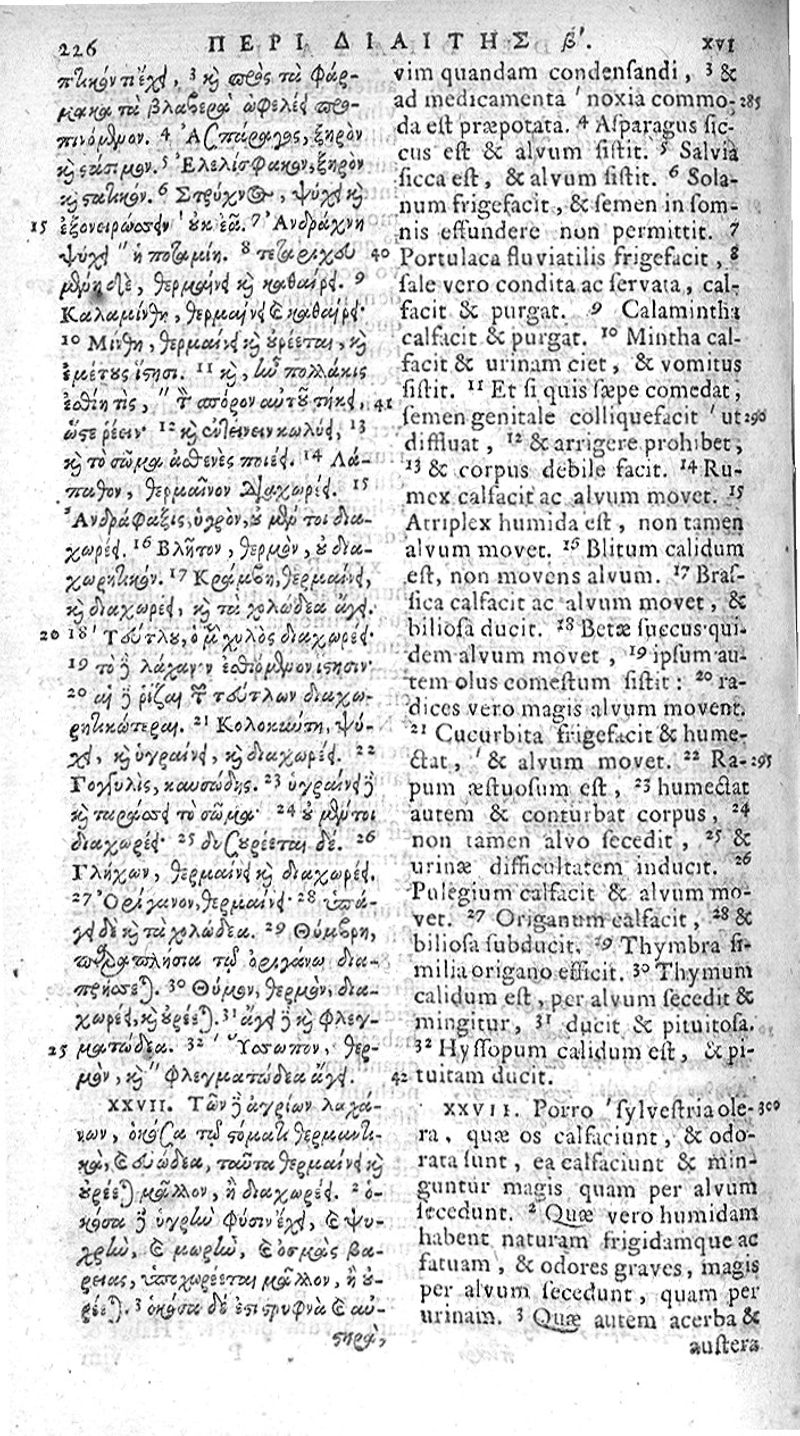 226 ΠΕΡΙ ΔΙΑΙΤΗΣ β'. XVI
πτικόν τι ἔχει, 3 καὶ πρὸς τὰ φάρ-
μακα τὰ βλαβερὰ ὠφελέει προ-
πινόμενον. 4 Ἀσπάραγος, ξηρὸν
καὶ στάσιμον. 5 Ἐλελίσφακον, ξηρὸν
καὶ στατικόν. 6 Στρύχνος, ψύχει καὶ
15 ἐξονειρώσσειν ' οὐκ ἐᾷ. 7 Ἀνδράχνη
ψύχει " ἡ ποταμίη. 8 τεταριχευ 40
μένη δὲ, θερμαίνει καὶ καθαίρει. 9
Καλαμίνθη, θερμαίνει καὶ καθαίρει·
10 Μίνθη, θερμαίνει καὶ οὐρέεται, καὶ
ἐμέτους ἵστησι. 11 καὶ, ἢν πολλάκις
ἐσθίῃ τις, " τὸν σπόρον αὐτοῦ τήκει, 41
ὥστε ῥέειν· 12 καὶ ἐντείνειν κωλύει, 13
καὶ τὸ σῶμα ἀσθενὲς ποιέει. 14 Λά-
παθον, θερμαῖνον διαχωρέει. 15
Ἀνδράφαξις, ὑγρὸν, οὐ μέν τοι δια-
χωρέει. 16 Βλῆτον, θερμὸν, οὐ δια-
χωρητικόν. 17 Κράμβη, θερμαίνει,
καὶ διαχωρέει, καὶ τὰ χολώδεα ἄγει.
20 18 ' Τεύτλου, ὁ μὲν χυλὸς διαχωρέει·
19 τὸ δὲ λάχανον ἐσθιόμενον ἵστησιν·
20 αἱ δὲ ῥίζαι τῶν τεύτλων διαχω-
ρητικώτεραι. 21 Κολοκύντη, ψύ-
χει, καὶ ὑγραίνει, καὶ διαχωρέει. 22
Γογγυλὶς, καυσώδης. 23 ὑγραίνει δὲ
καὶ ταράσσει τὸ σῶμα· 24 οὐ μέντοι
διαχωρέει· 25 δυσουρέεται δέ. 26
Γλήχων, θερμαίνει καὶ διαχωρέει.
27 Ὀρίγανον, θερμαίνει· 28 ὑπά-
γει δὲ καὶ τὰ χολώδεα. 29 Θύμβρη,
παραπλήσια τῷ ὀριγάνῳ δια-
πρήσσεται. 30 Θύμον, θερμὸν, δια-
χωρέει, καὶ οὐρέεται. 31 ἄγει δὲ καὶ φλεγ-
25 ματώδεα. 32 ' Ὕσσωπον, θερ-
μὸν, καὶ " φλεγματώδεα ἄγει. 42
XXVII. Τῶν δὲ ἀγρίων λαχά-
νων, ὁκόσα τῷ στόματι θερμαντι-
κὰ, καὶ εὐώδεα, ταῦτα θερμαίνει καὶ
οὐρέεται μᾶλλον, ἢ διαχωρέει. 2 ὁ-
κόσα δὲ ὑγρὴν φύσιν ἔχει, καὶ ψυ-
χρὴν, καὶ μωρὴν, καὶ ὀσμὰς βα-
ρείας, ὑποχωρέεται μᾶλλον, ἢ οὐ-
ρέεται. 3 ὁκόσα δέ ἐστι στρυφνὰ καὶ αὐ-
στηρὰ,
vim quandam condensandi, 3 &
ad medicamenta ' noxia commo- 285
da est præpotata. 4 Asparagus sic-
cus est & alvum sistit. 5 Salvia
sicca est, & alvum sistit. 6 Sola-
num frigefacit, & semen in som-
nis effundere non permittit. 7
Portulaca fluviatilis frigefacit, 8
sale vero condita ac servata, cal-
facit & purgat. 9 Calamintha
calfacit & purgat. 10 Mintha cal-
facit & urinam ciet, & vomitus
sistit. 11 Et si quis sæpe comedat,
semen genitale colliquefacit ' ut 290
diffluat, 12 & arrigere prohibet,
13 & corpus debile facit. 14 Ru-
mex calfacit ac alvum movet. 15
Atriplex humida est, non tamen
alvum movet. 16 Blitum calidum
est, non movens alvum. 17 Bras-
sica calfacit ac alvum movet, &
biliosa ducit. 18 Betæ succus qui-
dem alvum movet, 19 ipsum au-
tem olus comestum sistit: 20 ra-
dices vero magis alvum movent.
21 Cucurbita frigefacit & hume-
ctat, ' & alvum movet. 22 Ra- 295
pum æstuosum est, 23 humectat
autem & conturbat corpus, 24
non tamen alvo secedit, 25 &
urinæ difficultatem inducit. 26
Pulegium calfacit & alvum mo-
vet. 27 Origanum calfacit, 28 &
biliosa subducit. 29 Thymbra si-
milia origano efficit. 30 Thymum
calidum est, per alvum secedit &
mingitur, 31 ducit & pituitosa.
32 Hyssopum calidum est, & pi-
tuitam ducit.
XXVII. Porro ' sylvestria ole- 300
ra, quæ os calfaciunt, & odo-
rata sunt, ea calfaciunt & min-
guntur magis quam per alvum
secedunt. 2 Quæ vero humidam
habent naturam frigidamque ac
fatuam, & odores graves, magis
per alvum secedunt, quam per
urinam. 3 Quæ autem acerba &
austera